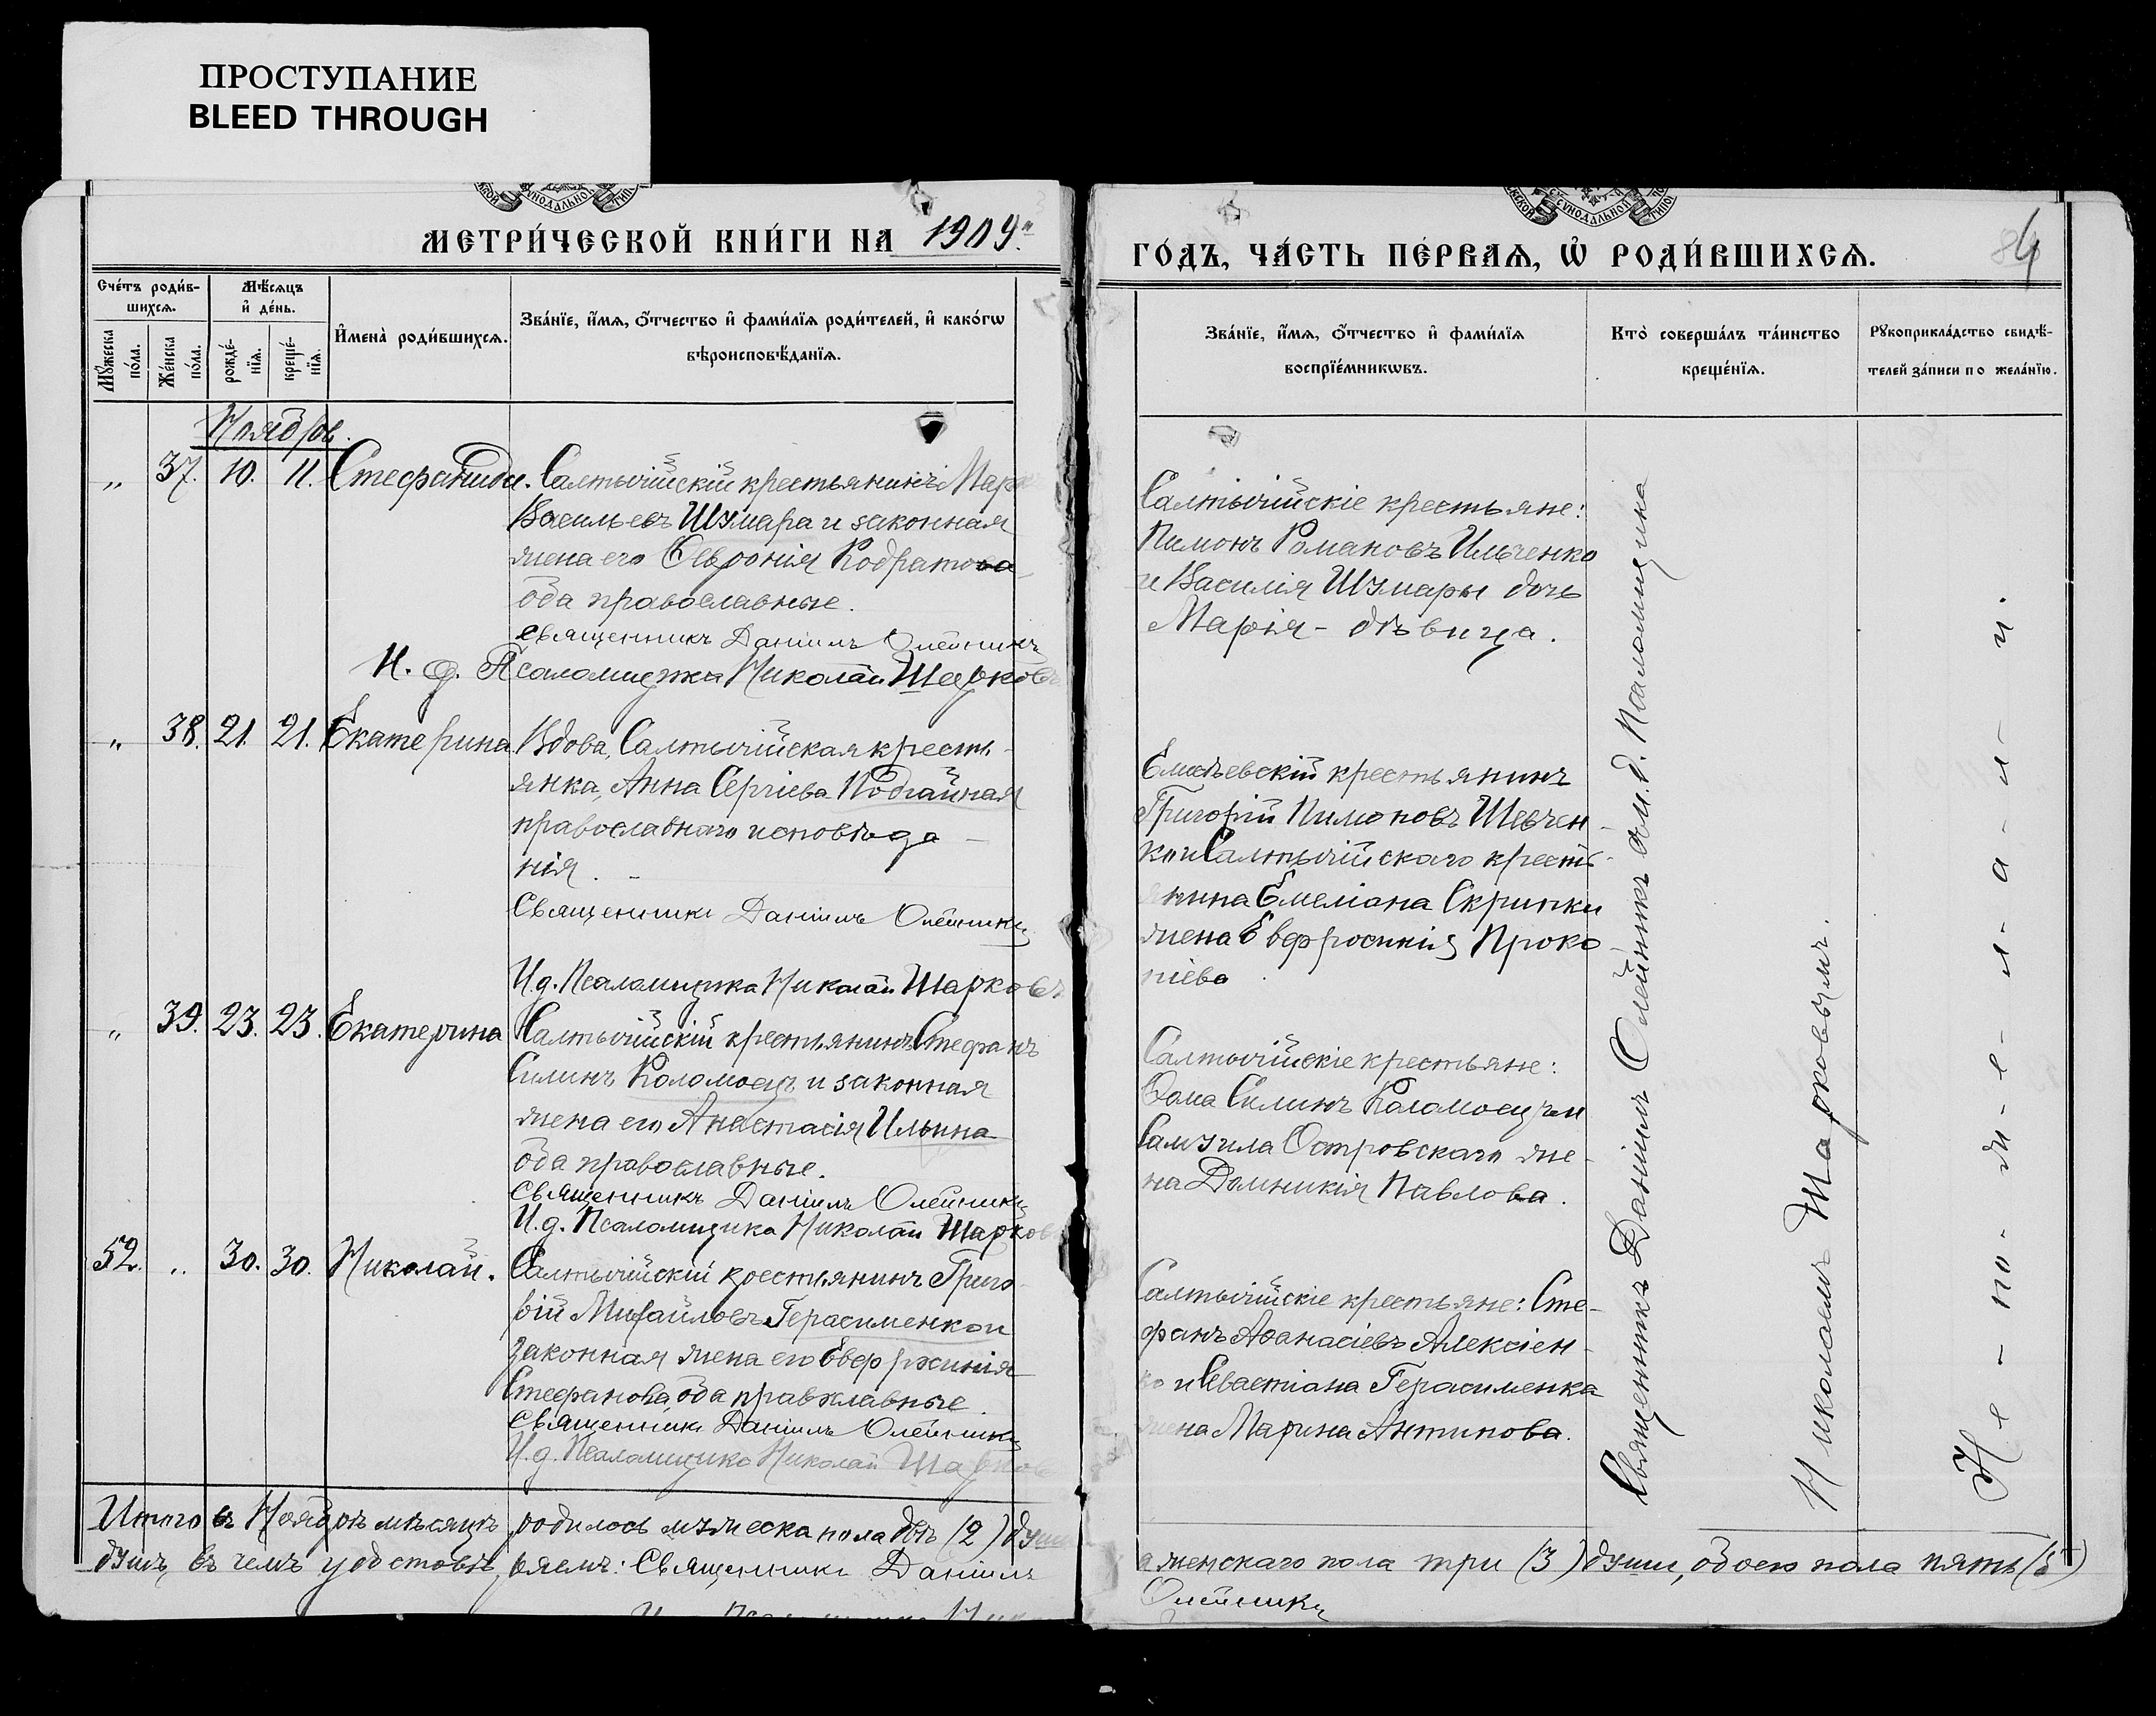 ПРОСТУПАНИЕ
BLEED THROUGH
МЕТРИ́ЧЕСКОЙ КНИ́ГИ НА 1909
ГО́ДЪ, ЧА́СТЬ ПЕ́РВАѦ, Ѡ҆ РОДИ́ВШИХСѦ.
Сче́тъ роди́в-
шихсѧ.
Мѣ́сѧцъ
и҆ де́нь.
И҆мена̀ роди́вшихсѧ.
Зва́нїе, и҆́мѧ, ѻ҆́тчество и҆ фами́лїѧ роди́телей, и҆ како́гѡ
вѣроисповѣ́данїѧ.
Мꙋ́жеска
по́ла.
Же́нска
по́ла.
рожде́-
нїѧ.
креще́-
нїѧ.
Зва́нїе, и҆́мѧ, ѻ҆́тчество и҆ фами́лїѧ
воспрїе́мникѡвъ.
Кто̀ соверша́лъ та́инство
креще́нїѧ.
Рꙋкоприкла́дство свидѣ́-
телей за́писи по жела́нїю.
Ноябрь.
„ 37. 10. 11. Стефанида. Салтычійскій крестьянинъ
Васильевъ Шумара и законная
жена его Февронія Кодратова
оба православные.
Священникъ Даніилъ Олейникъ
И. д. Псаломщика Николай Шарковъ
Салтычійскіе крестьяне:
Пимонъ Романовъ Ильченко
и Василія Шумары дочь
Марія - дѣвица.
„ 38. 21. 21. Екатерина Вдова, Салтычійская кресть-
янка, Анна Сергіева Подгайная
православнаго исповѣда-
нія. -
Священникъ Даніилъ Олейникъ
И.д. Псаломщика Николай Шарковъ
крестьянинъ
Григорій Пимоновъ Шевчен-
ко и Салтычійскаго кресть-
янина Емеліана Скрипки
жена Евфросинія Проко-
піева
„ 39. 23. 23. Екатерина Салтычійскій крестьянинъ Стефанъ
Силинъ Коломоецъ и законная
жена его Анастасія Ильина
оба православные.
Священникъ Даніилъ Олейникъ
И.д. Псаломщика Николай Шарковъ
Салтычійскіе крестьяне:
Ѳома Силинъ Коломоецъ и
Самуила Островскаго же-
на Домникія Павлова.
52. „ 30. 30. Николай. Салтычійскій крестьянинъ Григо-
рій Михайловъ Герасименко и
законная жена его Евфросинія
Стефанова, оба православные.
Священникъ Даніилъ Олейникъ
И.д. Псаломщика Николай Шарковъ
Салтычійскіе крестьяне: Сте-
фанъ Аѳанасіевъ Алексіен-
ко и Севастіана Герасименка
жена Марина Антипова.
Священникъ Даніилъ Олейникъ съ и. д. Псаломщика
Николаемъ Шарковымъ.
Не - по - же - л - а - л - и.
Итого въ Ноябрѣ мѣсяцѣ родилось мужеска пола двѣ (2) души
а женскаго пола три (3) души, обоего пола пять (5)
душъ, въ чемъ удостовѣряемъ: Священникъ Даніилъ
Олейникъ